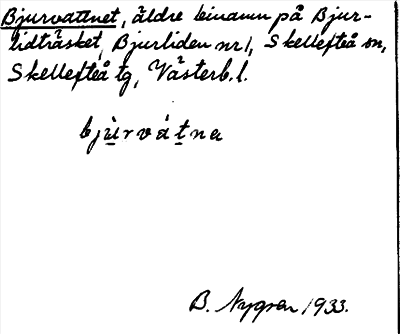 Bjurvattnet, äldre binamn på Bjur-
lidträsket, Bjurliden nr 1, Skellefteå sn,
Skellefteå tg, Västerb. l.
bjùrvátna
B. Nygren 1933.